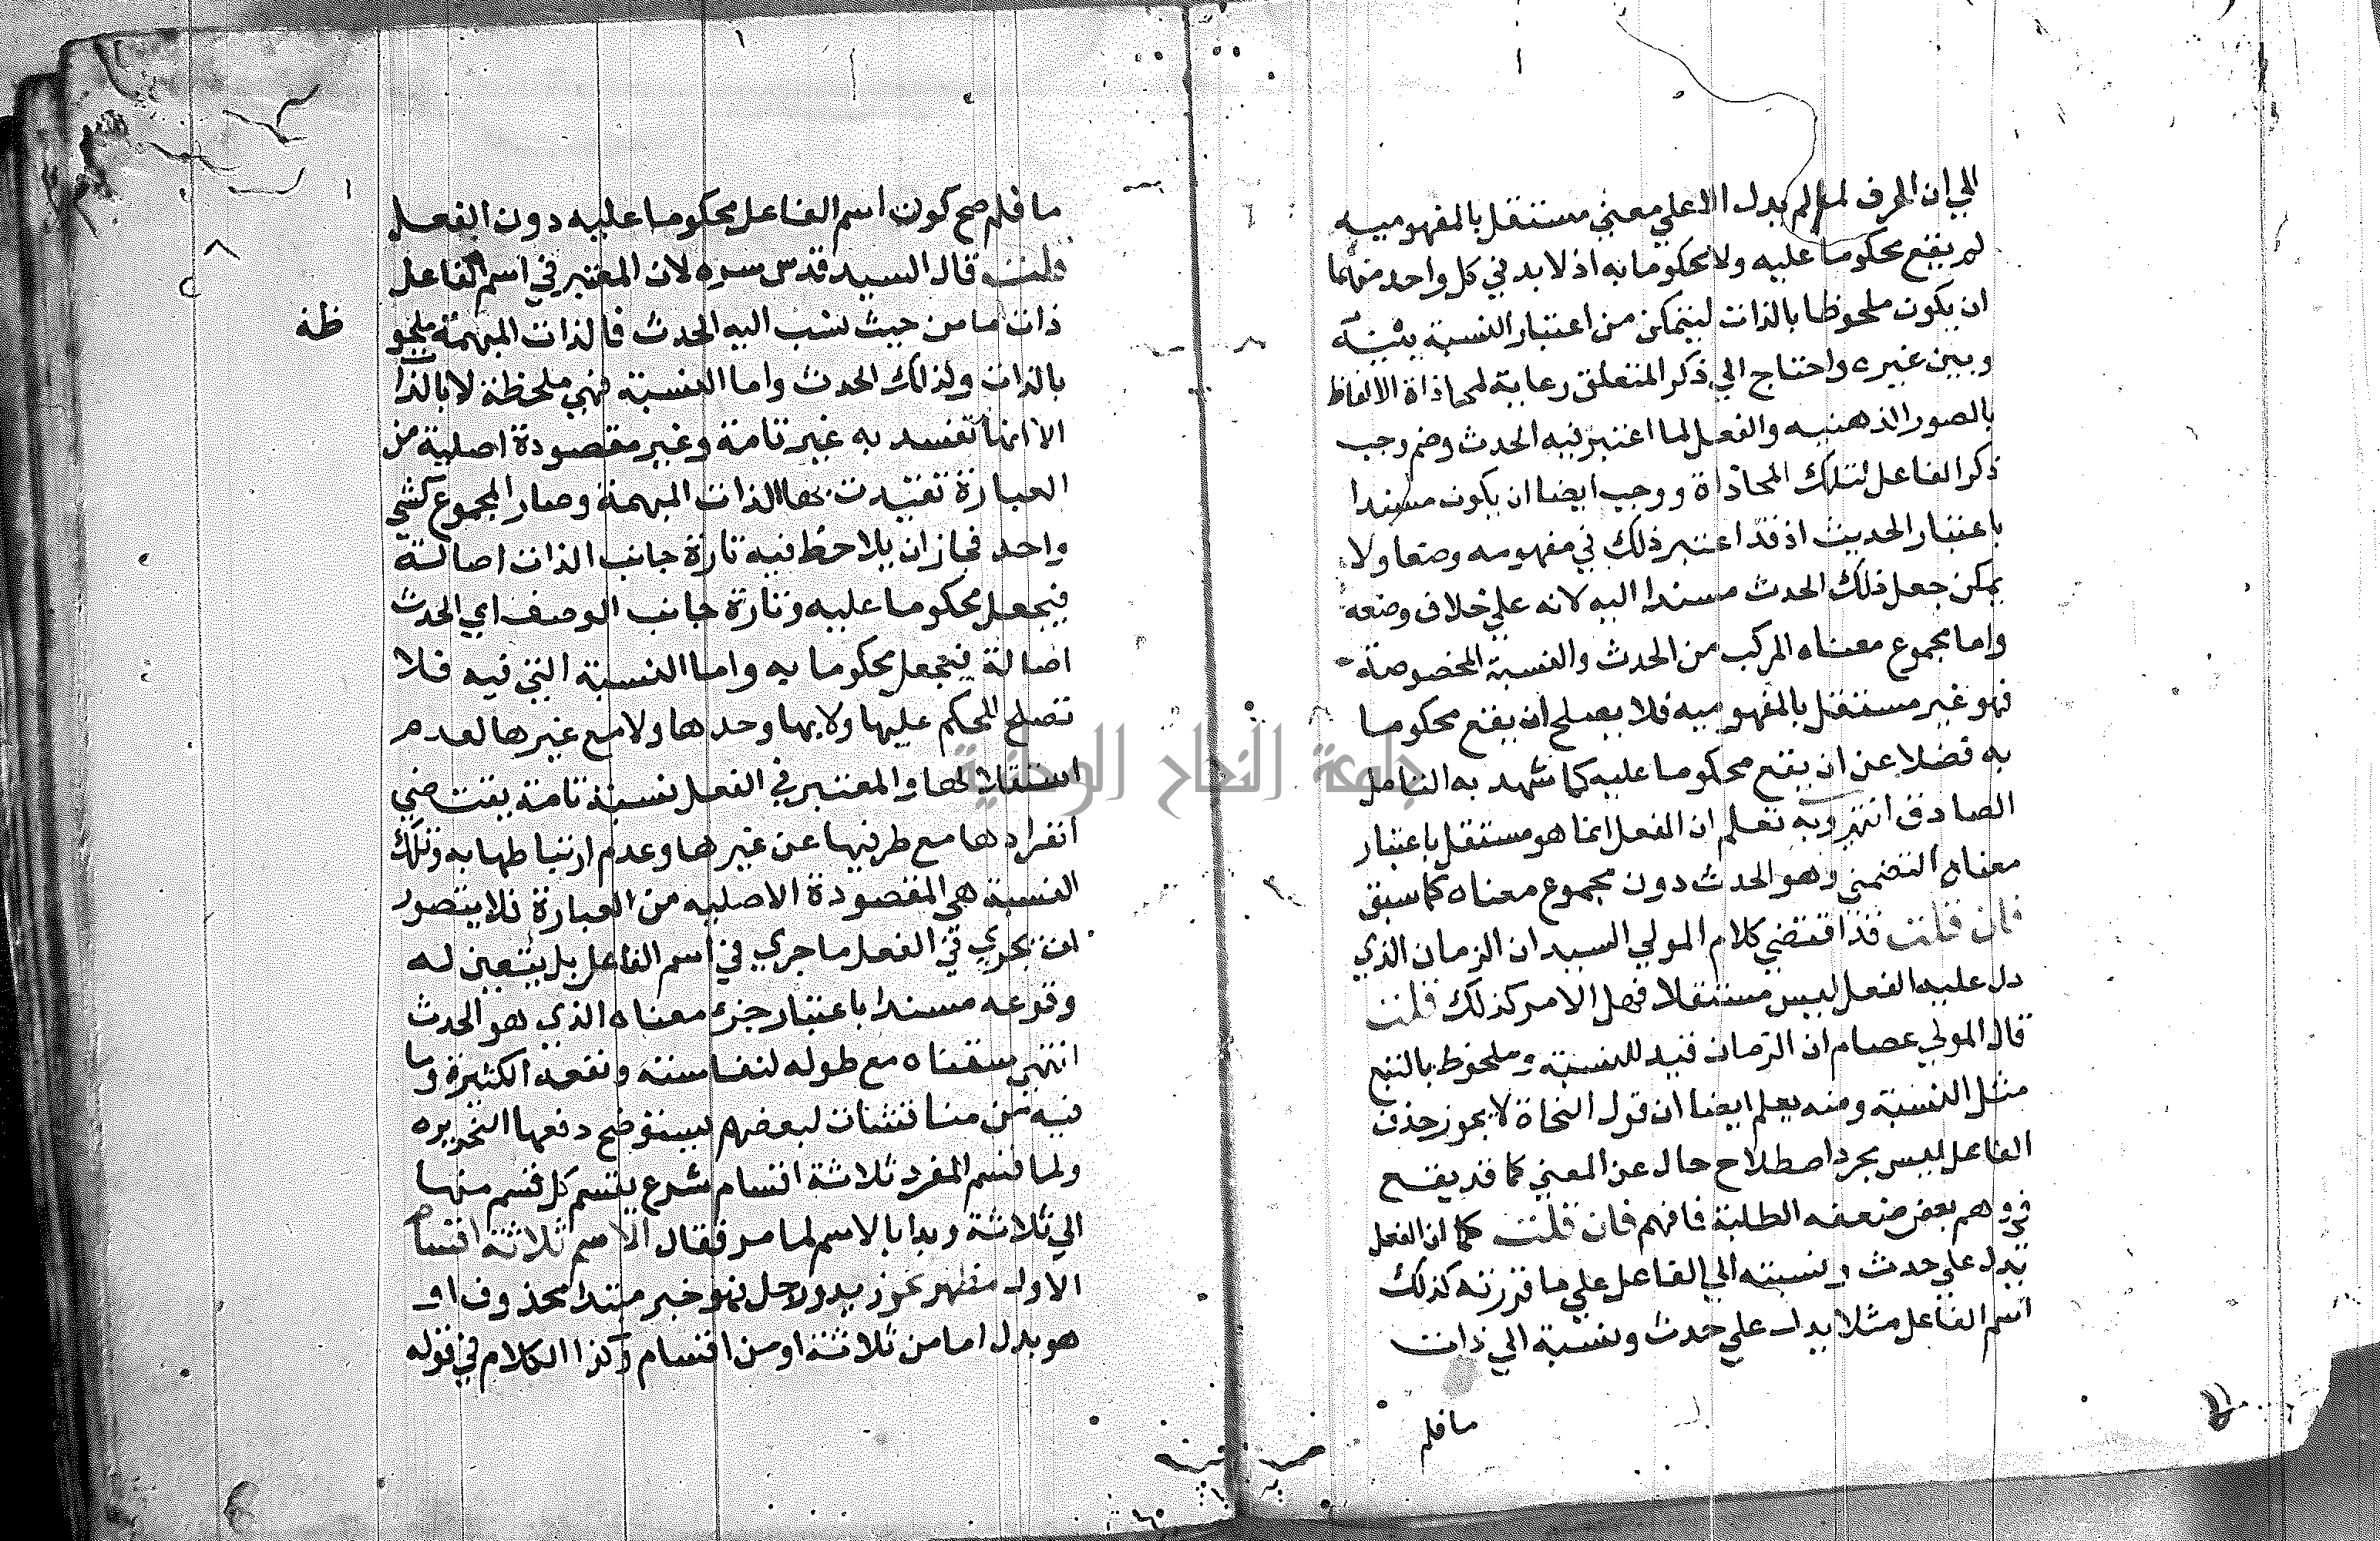 الي ان الحرف لما لم يدل الا علي معني مستقل بالمفهوميه
لم يقع محكوما عليه ولا محكوما به اذ لا بد في كل واحد منهما
ان يكون ملحوظا بالذات ليتمكن من اعتبار النسبة بينه
وبين غيره واحتاج الي ذكر المتعلق رعاية لمحاذاة الالفاظ
بالصور الذهنيه والفعل لما اعتبر فيه الحدث وضم وجب
ذكر الفاعل لتلك المحاذاة ووجب ايضا ان يكون مسندا
باعتبار الحديث اذ قد اعتبر ذلك في مفهومه وضعا ولا
يمكن جعل ذلك الحدث مسندا اليه لانه علي خلاف وضعه
واما مجموع معناه المركب من الحدث والنسبة المخصوصة
فهو غير مستقل بالمفهوميه فلا يصلح ان يقع محكوما
به فضلا عن ان يقع محكوما عليه كما شهد به التامل
الصادق انتهي وبه تعلم ان الفعل انما هو مستقل باعتبار
معناه التضمني وهو الحدث دون مجموع معناه كما سبق
فان قلت قد اقتضي كلام المولي السيد ان الزمان الذي
دل عليه الفعل ليس مستقلا فهل الامر كذلك قلت
قال المولي عصام ان الزمان قيد للنسبة وملحوظ بالتبع
مثل النسبة ومنه يعلم ايضا ان قول النحاة لا يجوز حذف
الفاعل ليس مجرد اصطلاح حال عن المعني كما قد يقع
في وهم بعض ضعفه الطلبة فافهم فان قلت كما ان الفعل
يدل علي حدث ونسبته الي الفاعل علي ما قررته كذلك
اسم الفاعل مثلا يدل علي حدث ونسبة الي ذات
ما فلم
ما فلم صح كون اسم الفاعل محكوما عليه دون الفعل
قلت قال السيد قدس سره لان المعتبر في اسم الفاعل
ذات ما من حيث نسب اليه الحدث فالذات المبهمة ملحو
ظة
بالذات ولذلك الحدث واما النسبة فهي ملحظة لا بالذا
ت
الا انها تفسد به غير تامة وغير مقصودة اصلية من
العبارة تقيدت بها الذات المبهمة وصار المجموع كشي
واحد فجاز ان يلاحظ فيه تارة جانب الذات اصالة
فيجعل محكوما عليه وتارة جانب الوصف اي الحدث
اصالة فيجعل محكوما به واما النسبة التي فيه فلا
تصلح للحكم عليها ولا بها وحدها ولا مع غيرها لعدم
استقلالها والمعتبر في الفعل نسبة تامة يقتضي
انفرادها مع طرفيها عن غيرها وعدم ارتباطها به وتلك
النسبة هي المقصودة الاصليه من العبارة فلا يتصور
ان يجري في الفعل ما جري في اسم الفاعل بل يتعين له
وقوعه مسندا باعتبار جزء معناه الذي هو الحدث
انتهي سقناه مع طوله لنفاسته ونفعه الكثيرة وما
فيه من مناقشات لبعضهم سيتوضح دفعها
ولما قسم المفرد ثلاثة اقسام شرع يقسم كل قسم منها
الي ثلاثة وبدا بالاسم لما مر فقال الاسم ثلاثة اقسام
الاول مظهر نحو زيد ورجل فهو خبر مبتدا محذوف او
هو بدل اما من ثلاثة او من اقسام وكذا الكلام في قوله
جامعة النجاح الوطنية